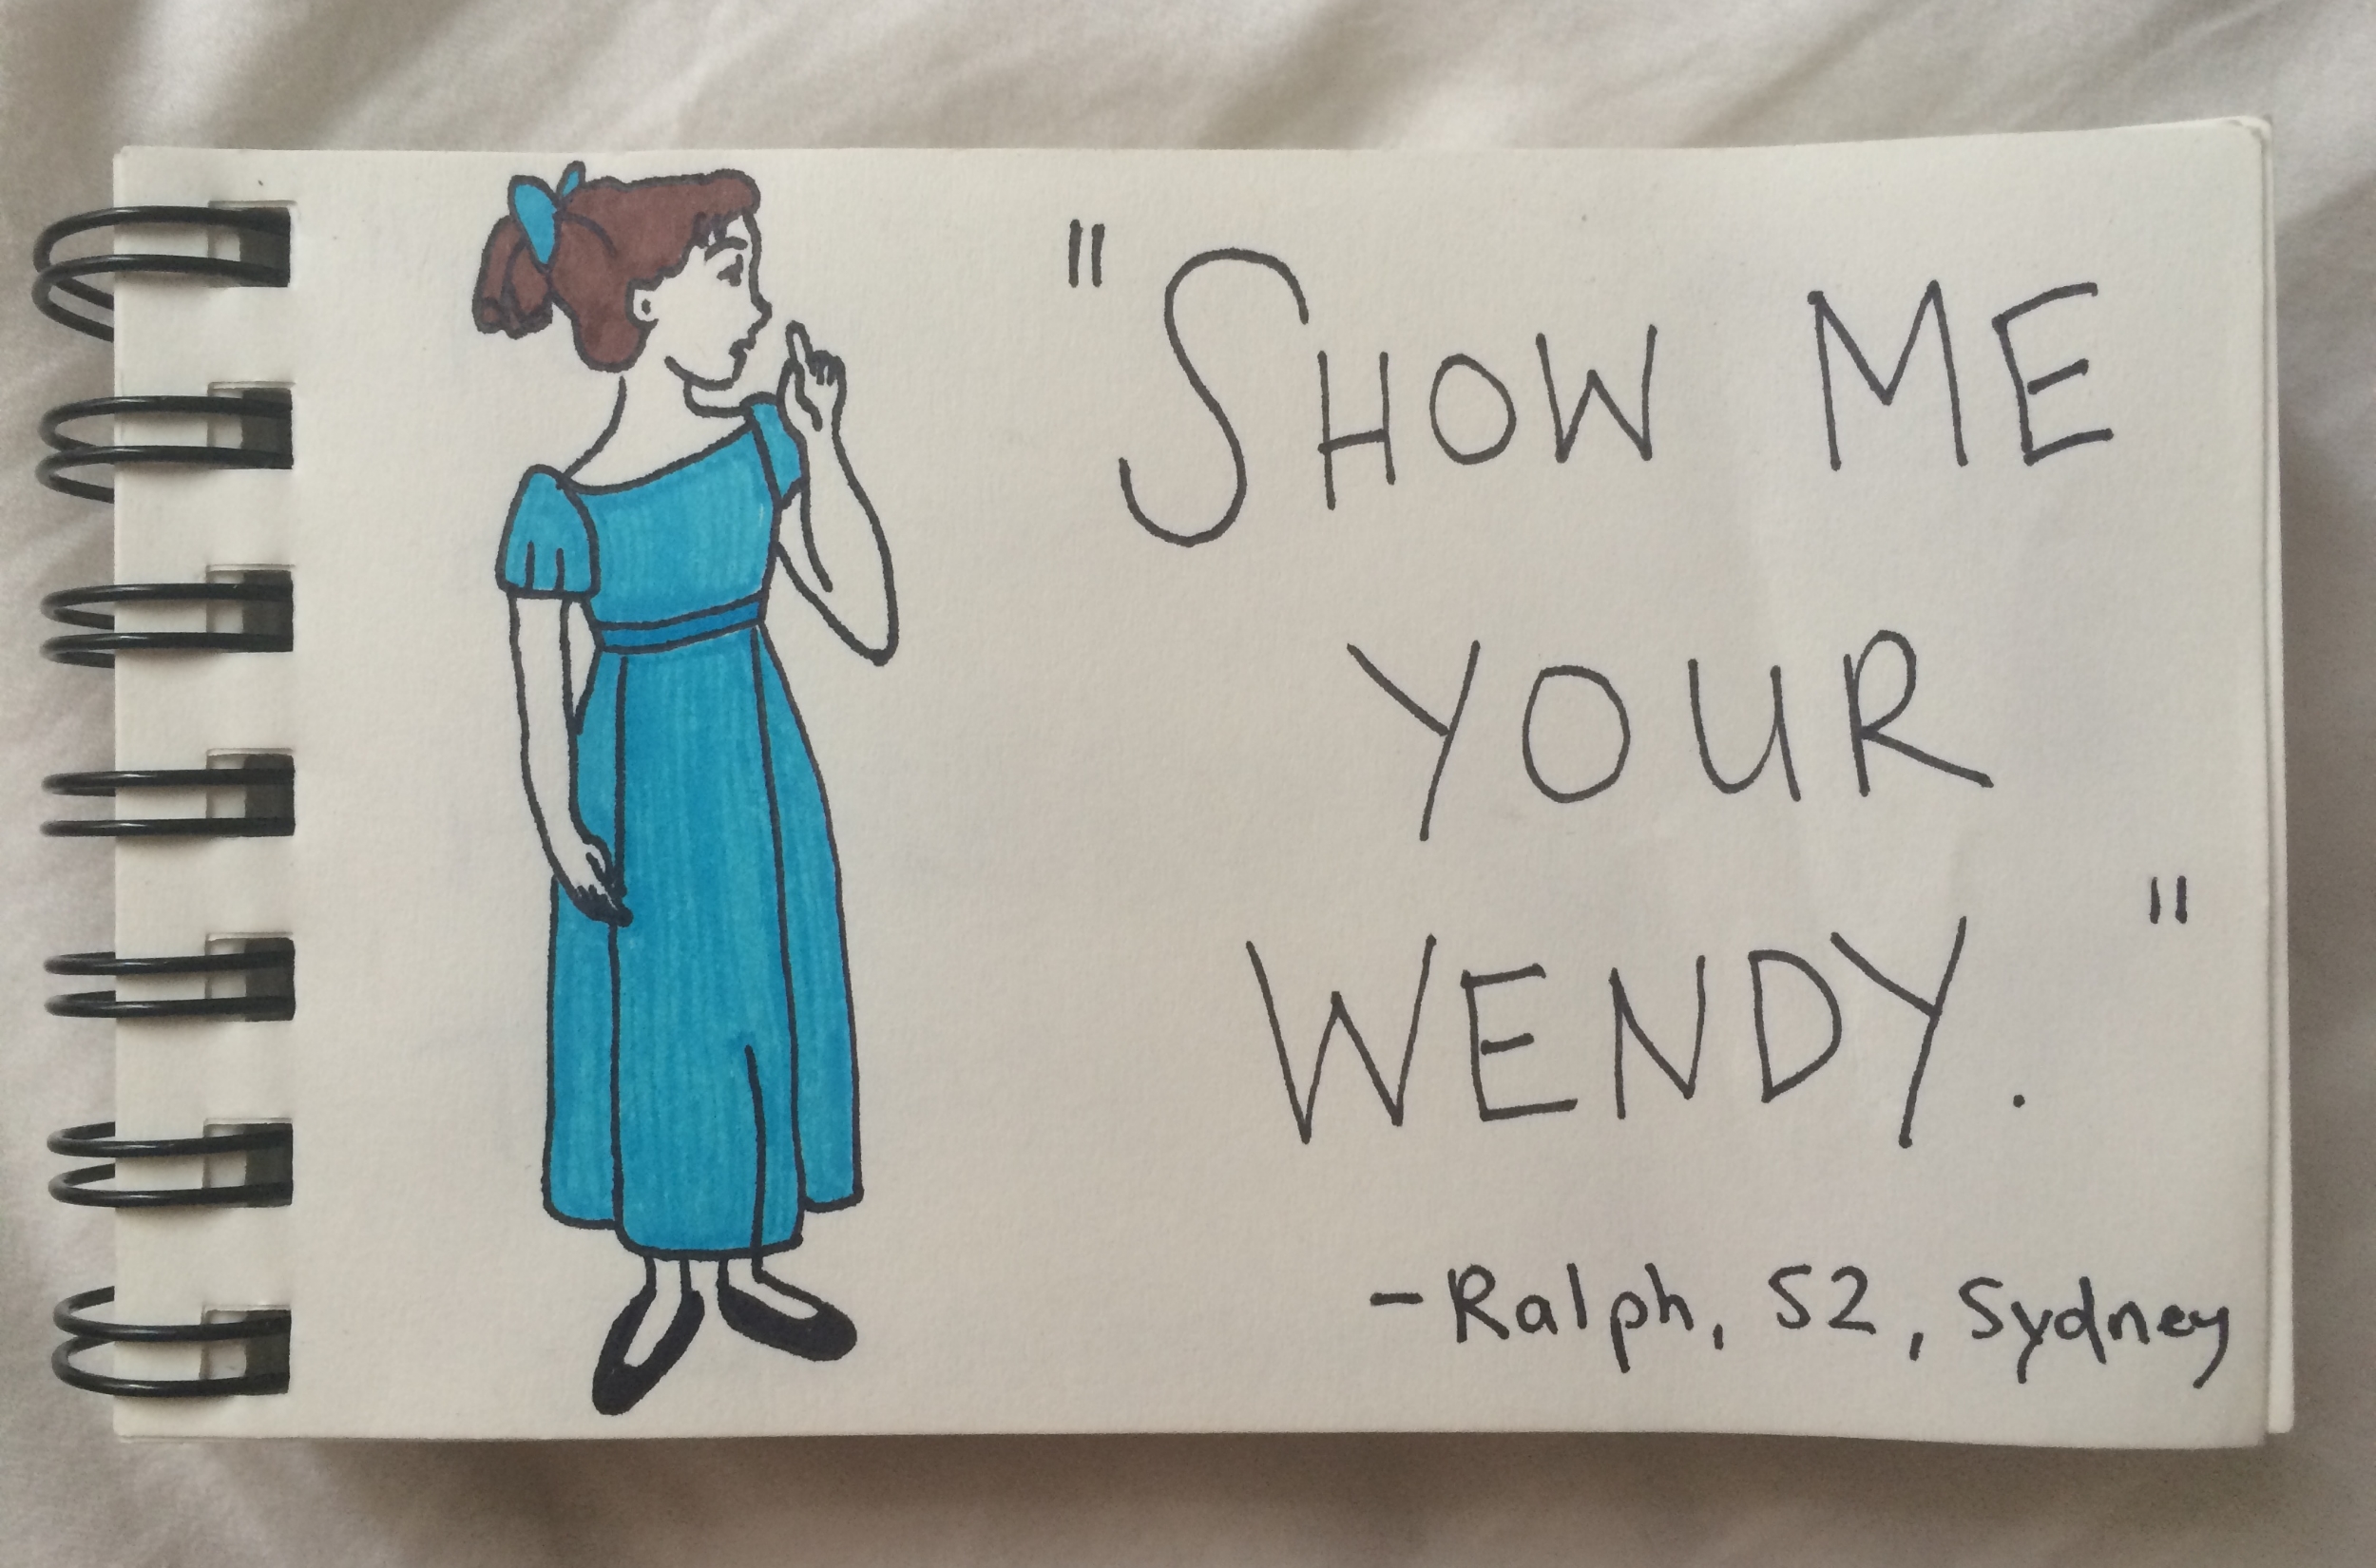 "SHOW ME
YOUR
WENDY."
-Ralph, 52, Sydney